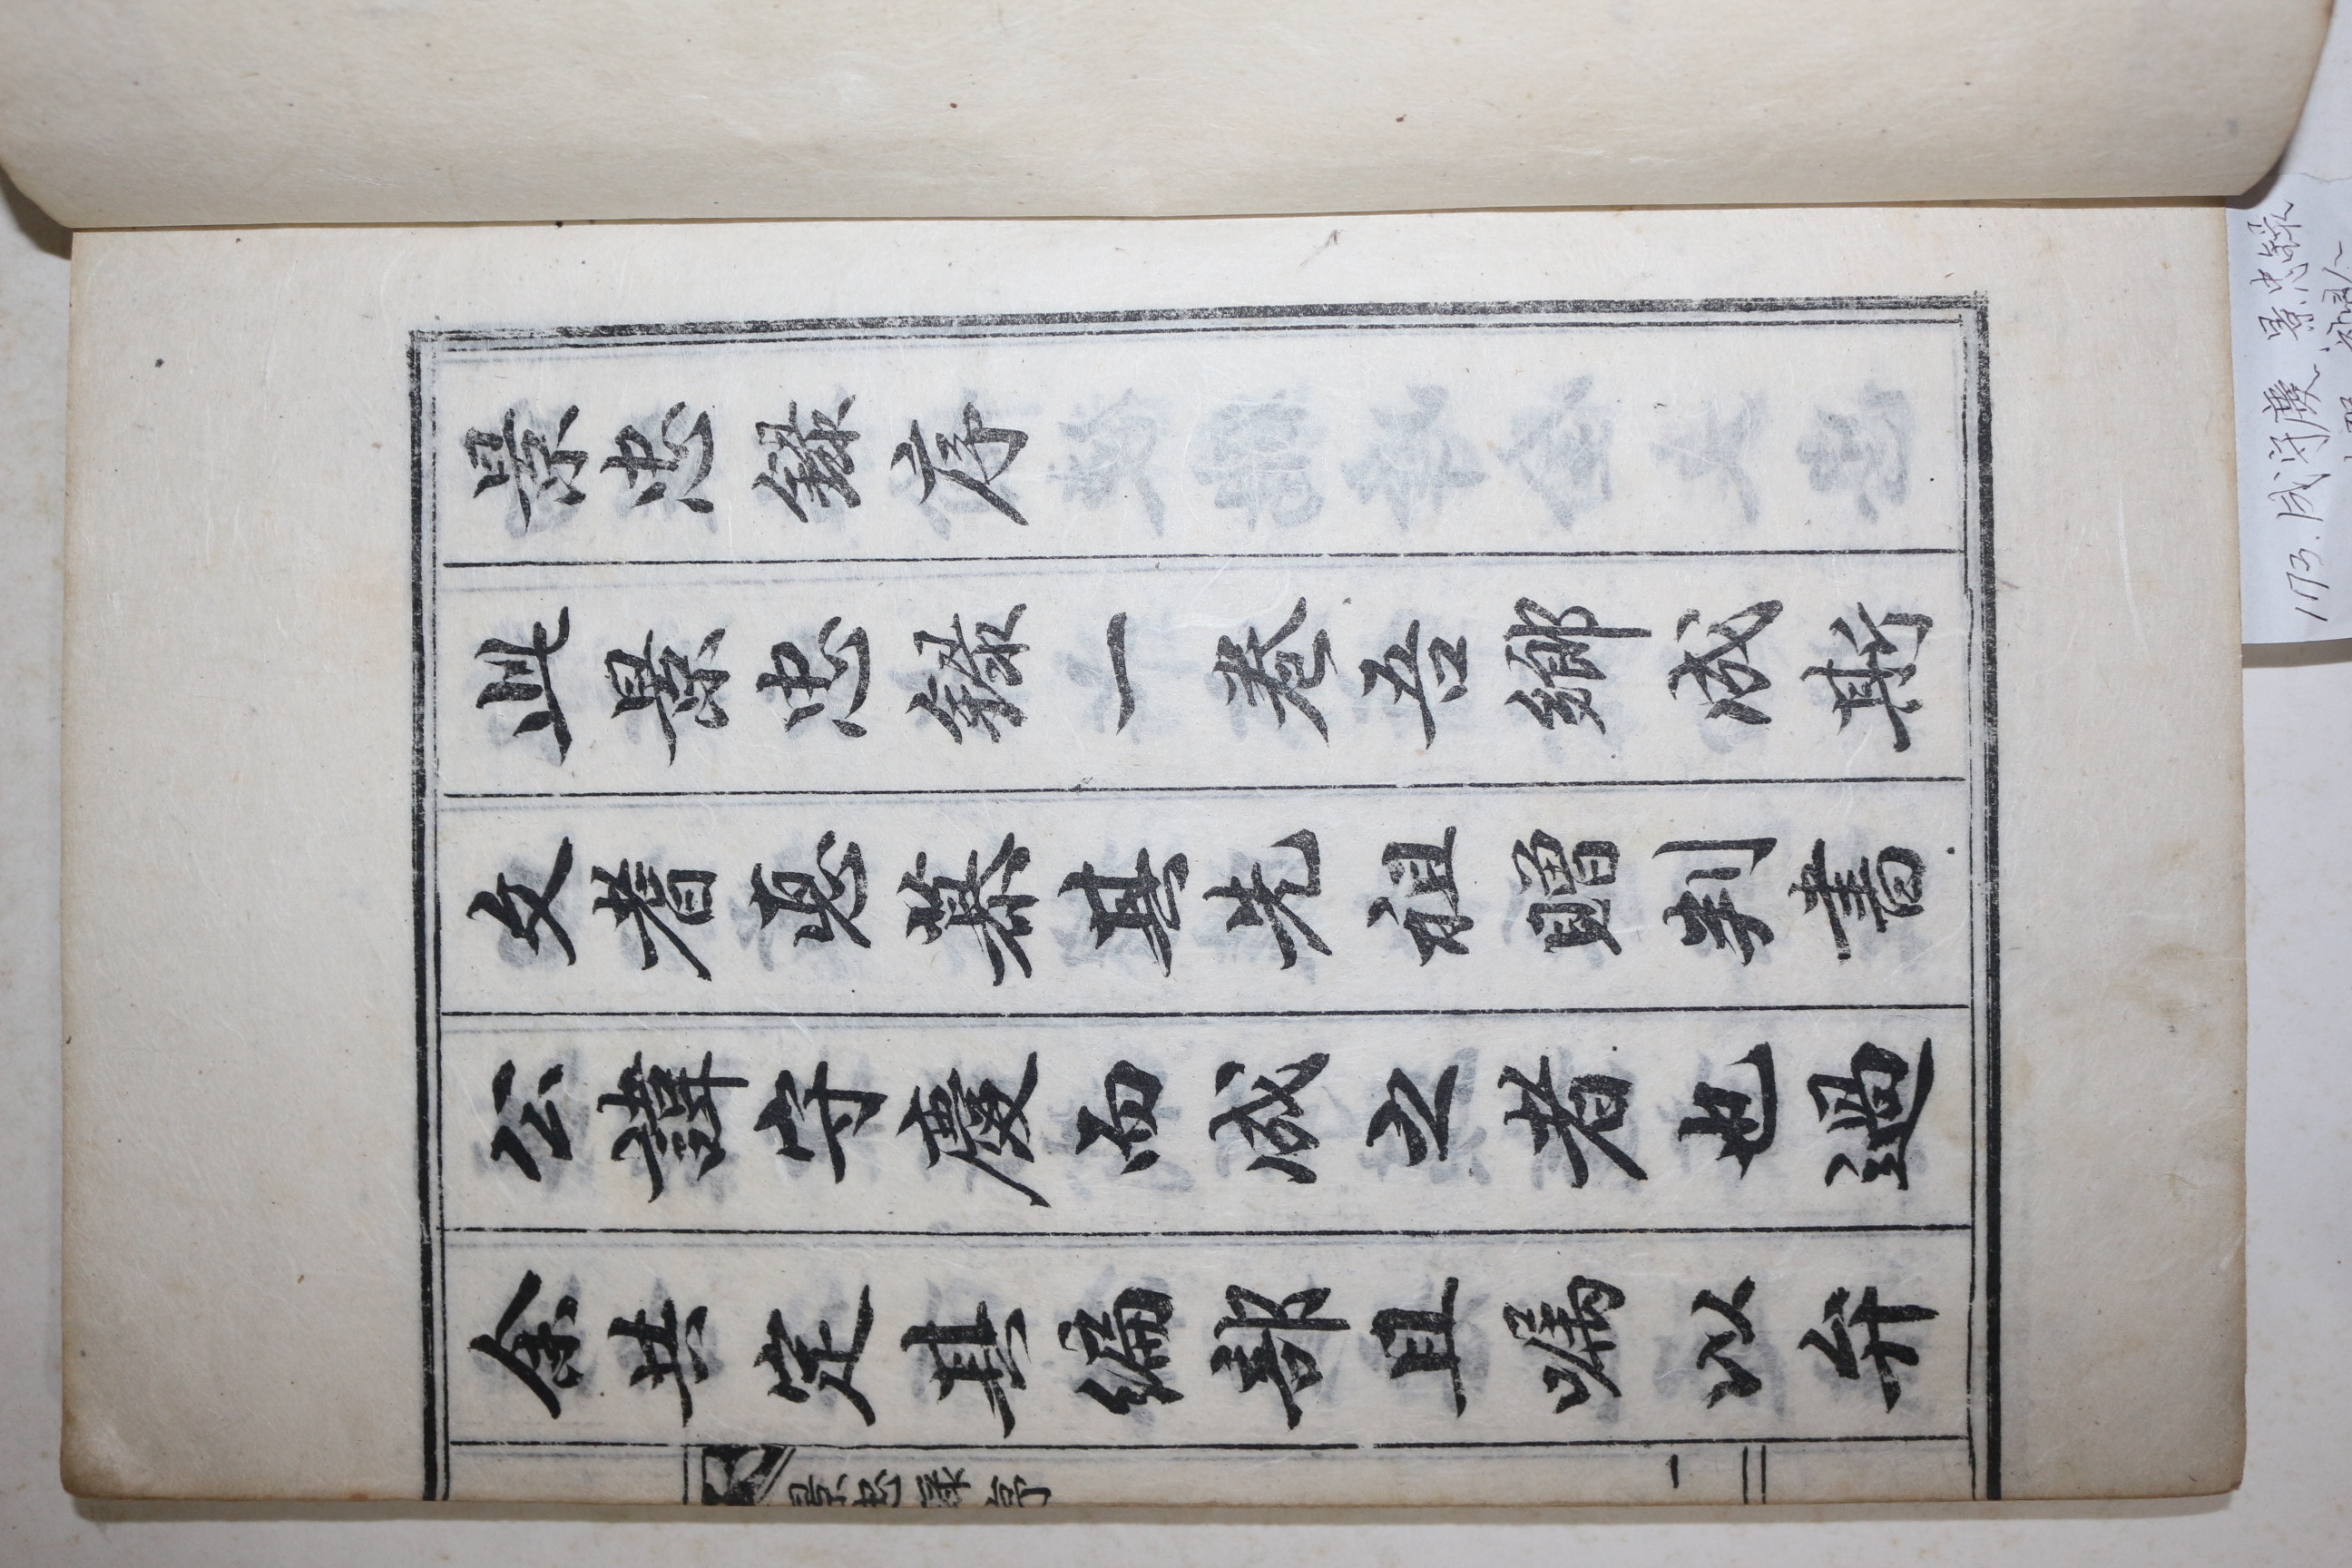 景忠錄序
此景忠錄一卷吾鄉成斯
文耆悳慕其先祖贈判書
公諱守慶而成之者也過
余共定其編部且嘱以弁
景忠录序
一
1173. 成守慶 景忠錄